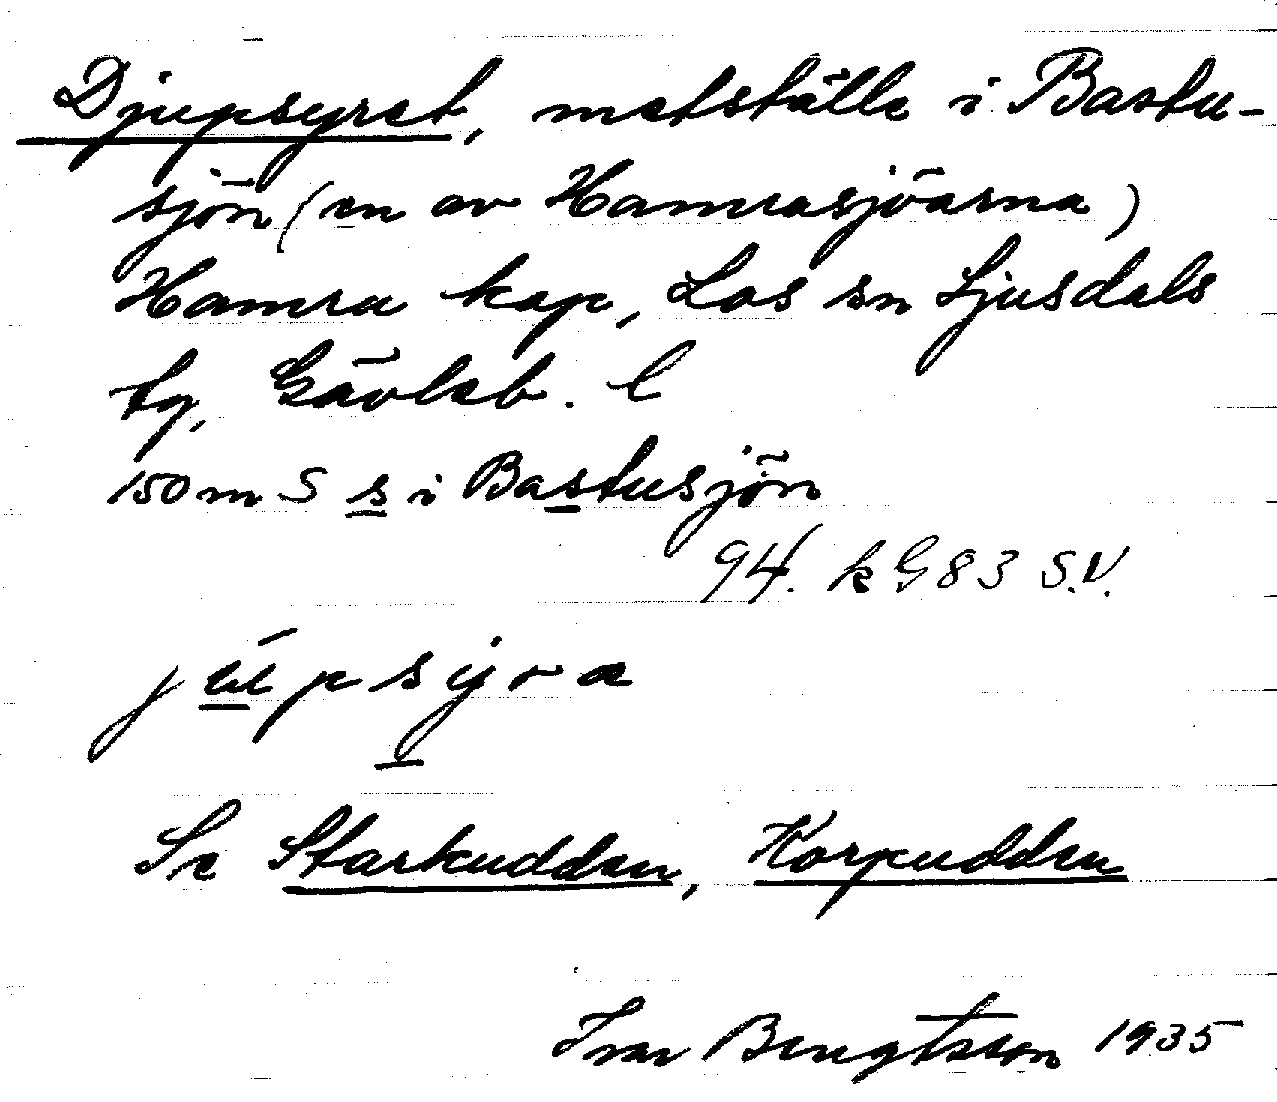 Djupsyret, metställe i Bastu-
sjön (en av Hamrasjöarna)
Hamra kap, Los sn Ljusdals
tg, Gävleb. l
150 m S s i Bastusjön
94. k G 83 S.V.
júpsyra
Se Starkudden, Korpudden
Ivar Bengtsson 1935